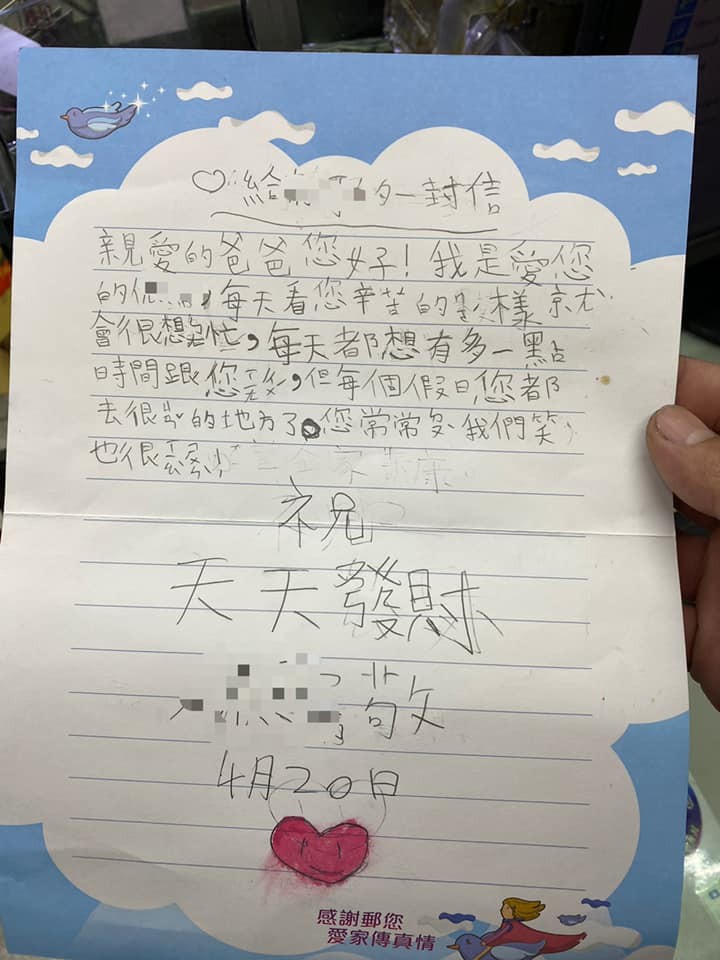 ♡給 ㄉ一封信
親愛的爸爸您好！我是愛您
的，每天看您辛苦的樣京尤
會很想忙，每天都想有多一點
時間跟您，但每個假日您都
去很的地方了。您常常我們笑
也很
祝
天天發財
敬
4月20日
感謝郵您
愛家傳真情